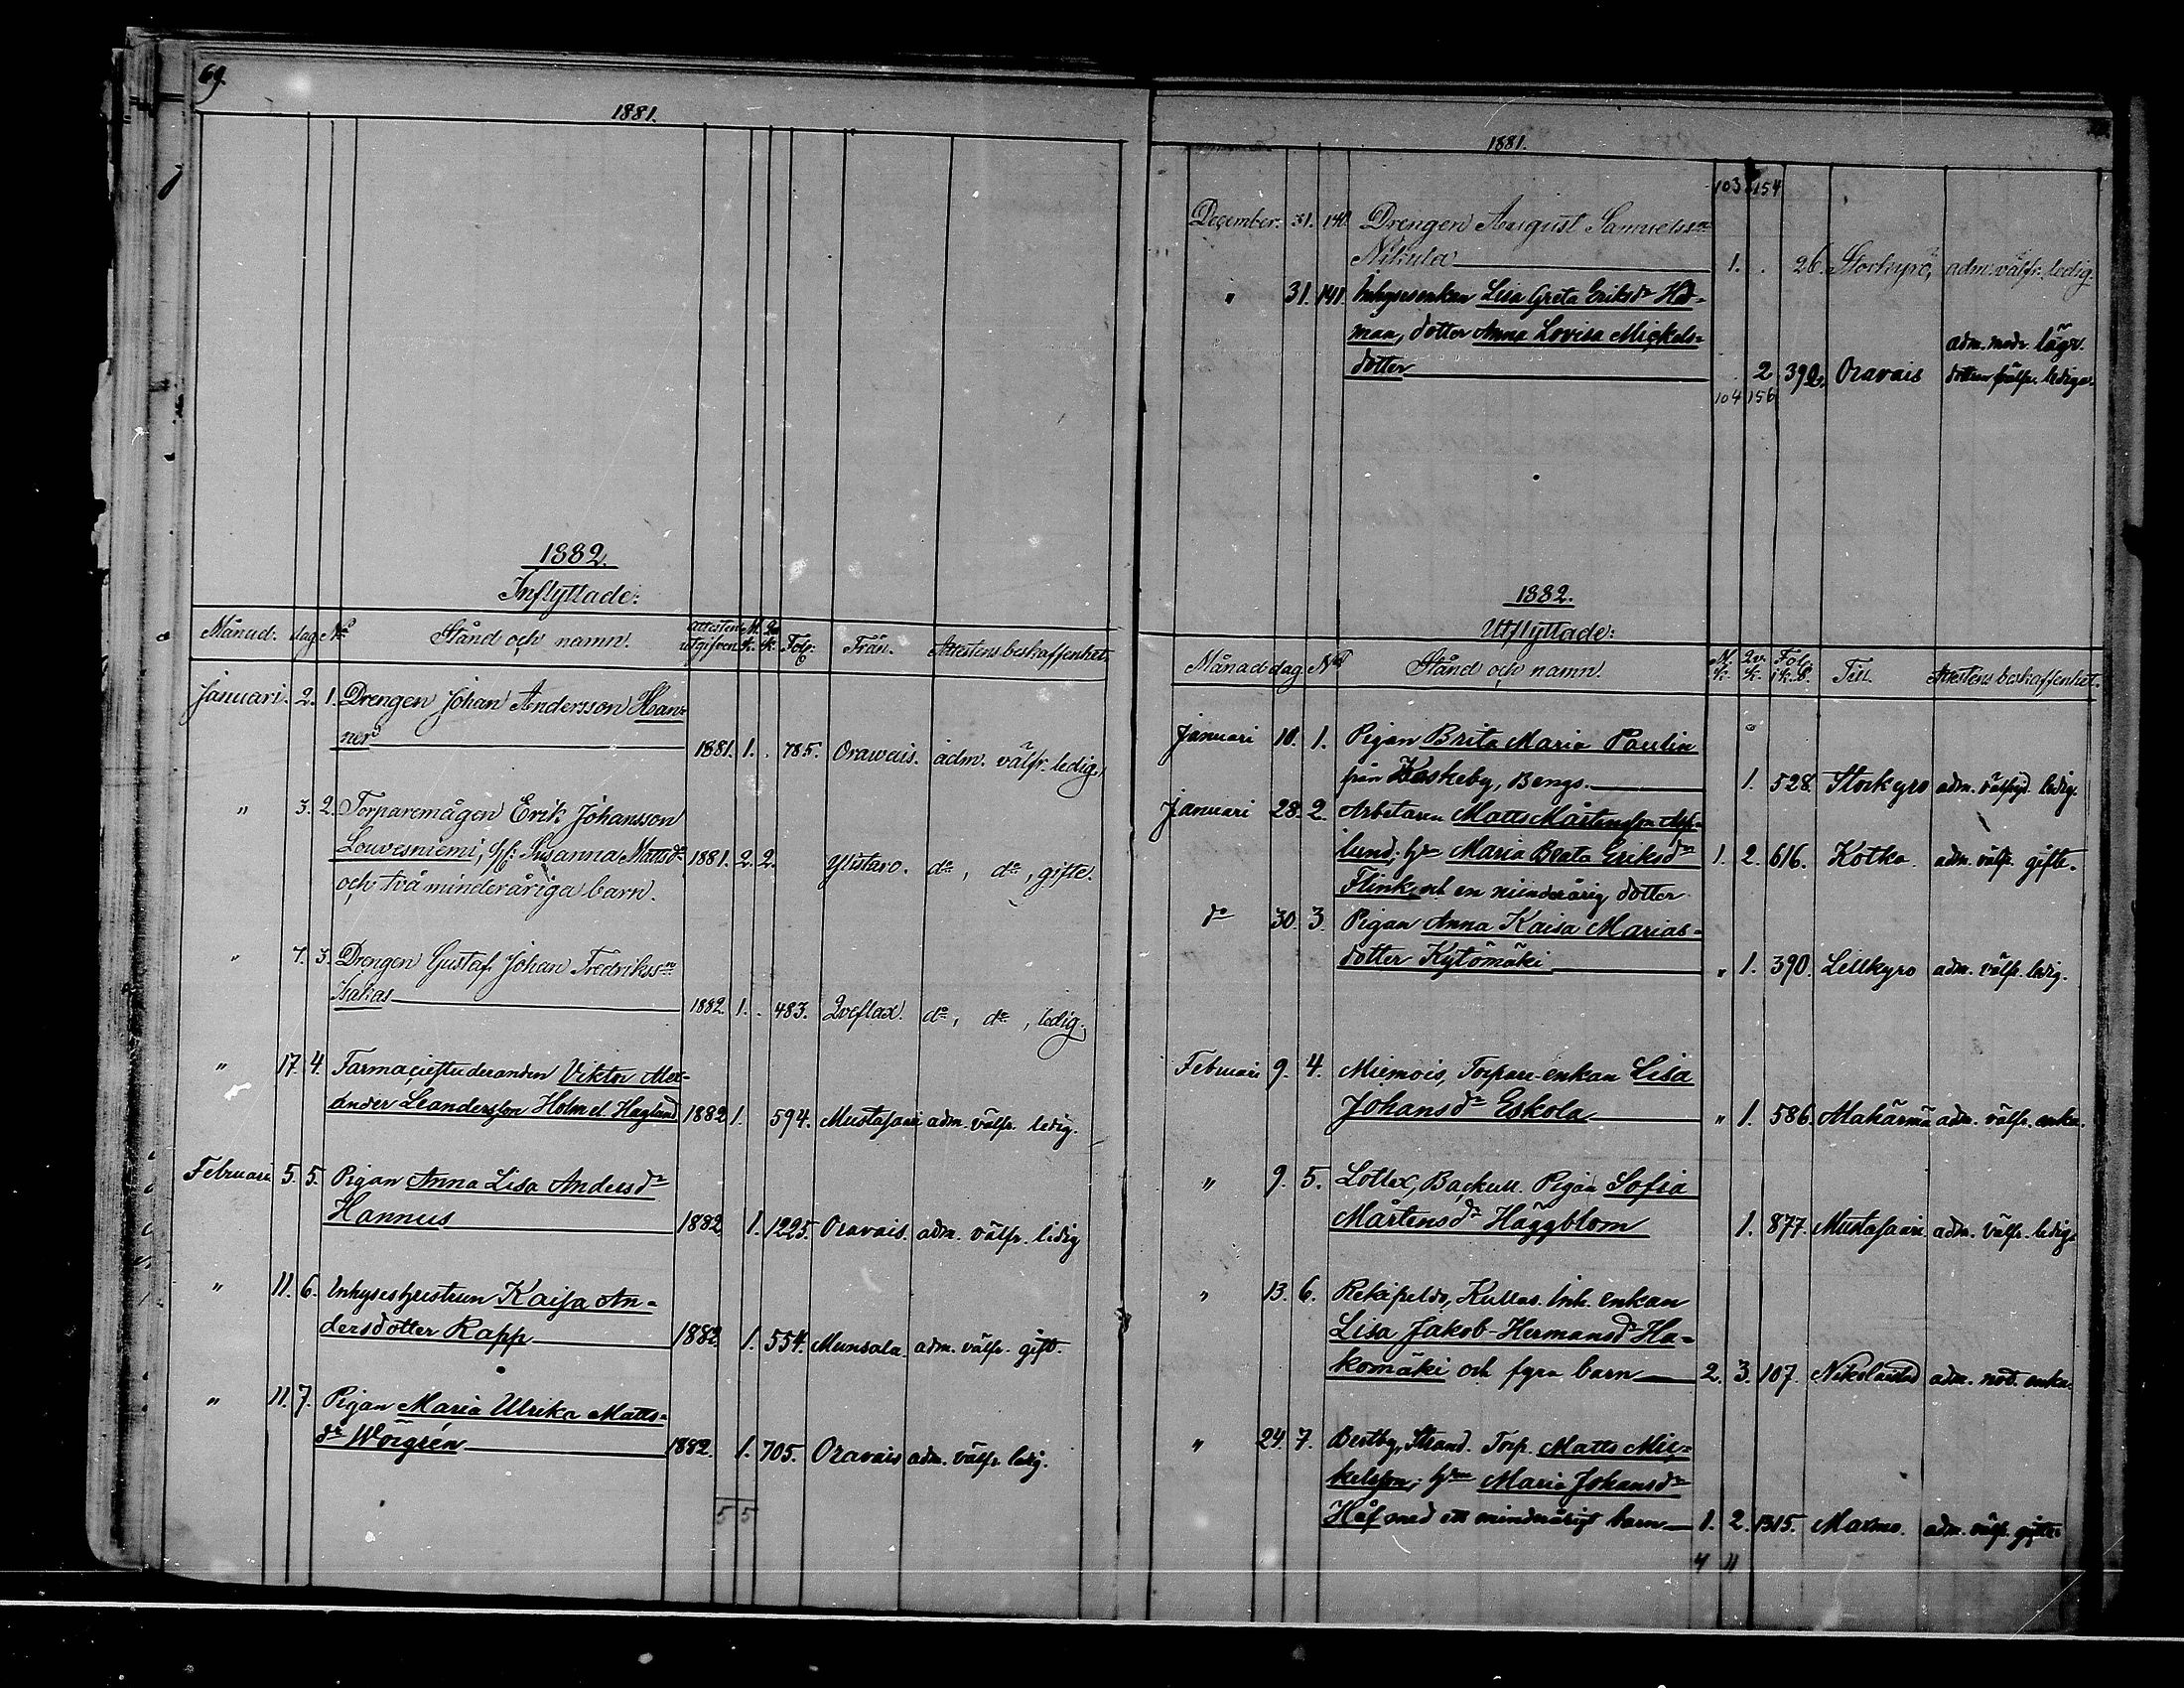 69.
1881.
1882.
Inflyttade:
Månad. dag. No Stånd och namn. Attesten utgifven M. k. Qv. k. Fol: Från. Attestens beskaffenhet.
Januari. 2. 1. Drengen Johan Andersson Han-
ner 1881. 1. . 785. Orawais. adm. välfr. ledig.
" 3. 2. Torparemågen Erik Johansson
Louvesniemi, h: Susanna Mattsdr 1881. 2. 2. Ylistaro. do, do, gifte.
och två minderåriga barn.
" 7. 3. Drengen Gustaf Johan Fredrikssn
Isakas 1882. 1. . 483. Qveflax. do, do, ledig.
" 17. 4. Farmaciestuderanden Viktor Alex-
ander Leandersson Holm el. Hagland 1882 1. 594. Mustasaari adm. välfr. ledig.
Februari 5. 5. Pigan Anna Lisa Andersdr
Hannus 1882. 1. 1225. Oravais. adm. välfr. ledig
" 11. 6. Inhyseshustrun Kaisa An-
dersdotter Rapp 1882. 1. 554. Munsala. adm. välfr. gift.
" 11. 7. Pigan Maria Ulrika Matts-
dr Wörgrén 1882. 1. 705. Oravais adm. välfr. ledig.
5 5
1881.
103 154
December. 31. 140. Drengen August Samuelssn
Nikula 1. . 26. Storkyro, adm. välfr. ledig.
" 31. 141. Inhysesenkan Lisa Greta Eriksdr Hed-
man, dotter Anna Lovisa Mickels-
adm. modr. lägr.
dotter . 2 392. Oravais dottren välfr. lediga.
104 156
1882.
Utflyttade:
Månad dag. No Stånd och namn. M. k. Qv. k. Fol. i k.b. Till. Attestens beskaffenhet.
Januari 10. 1. Pigan Brita Maria Paulin
från Kaskeby, Bengs. 1. 528. Storkyro adm. välfrejd. ledig.
Januari 28. 2. Arbetaren Matts Mårtensson Asp-
lund; hu Maria Beata Eriksdr 1. 2. 616. Kotka. adm. välfr. gifte.
Flink och en minderårig dotter
do 30. 3. Pigan Anna Kaisa Marias-
dotter Kytömäki " 1. 390. Lillkyro adm. välfr. ledig.
Februari 9. 4. Miemois, Torpare-enkan Lisa
Johansdr Eskola " 1. 586. Alahärmä adm. välfr. enka.
" 9. 5. Lotlax, Backull. Pigan Sofia
Mårtensdr Häggblom 1. 877. Mustasaari. adm. välfr. ledig.
" 13. 6. Rekipeldo, Kullas. Inh. enkan
Lisa Jakob-Hermansdr Ha-
komäki och fyra barn 2. 3. 107. Nikolaistad adm. nöd. enka.
" 24. 7. Bertby, Strand. Torp. Matts Mic-
kelsson; hu Maria Johansdr
Håf med ett minderårigt barn 1. 2. 1315. Maxmo. adm. välfr. gifte.
4 11